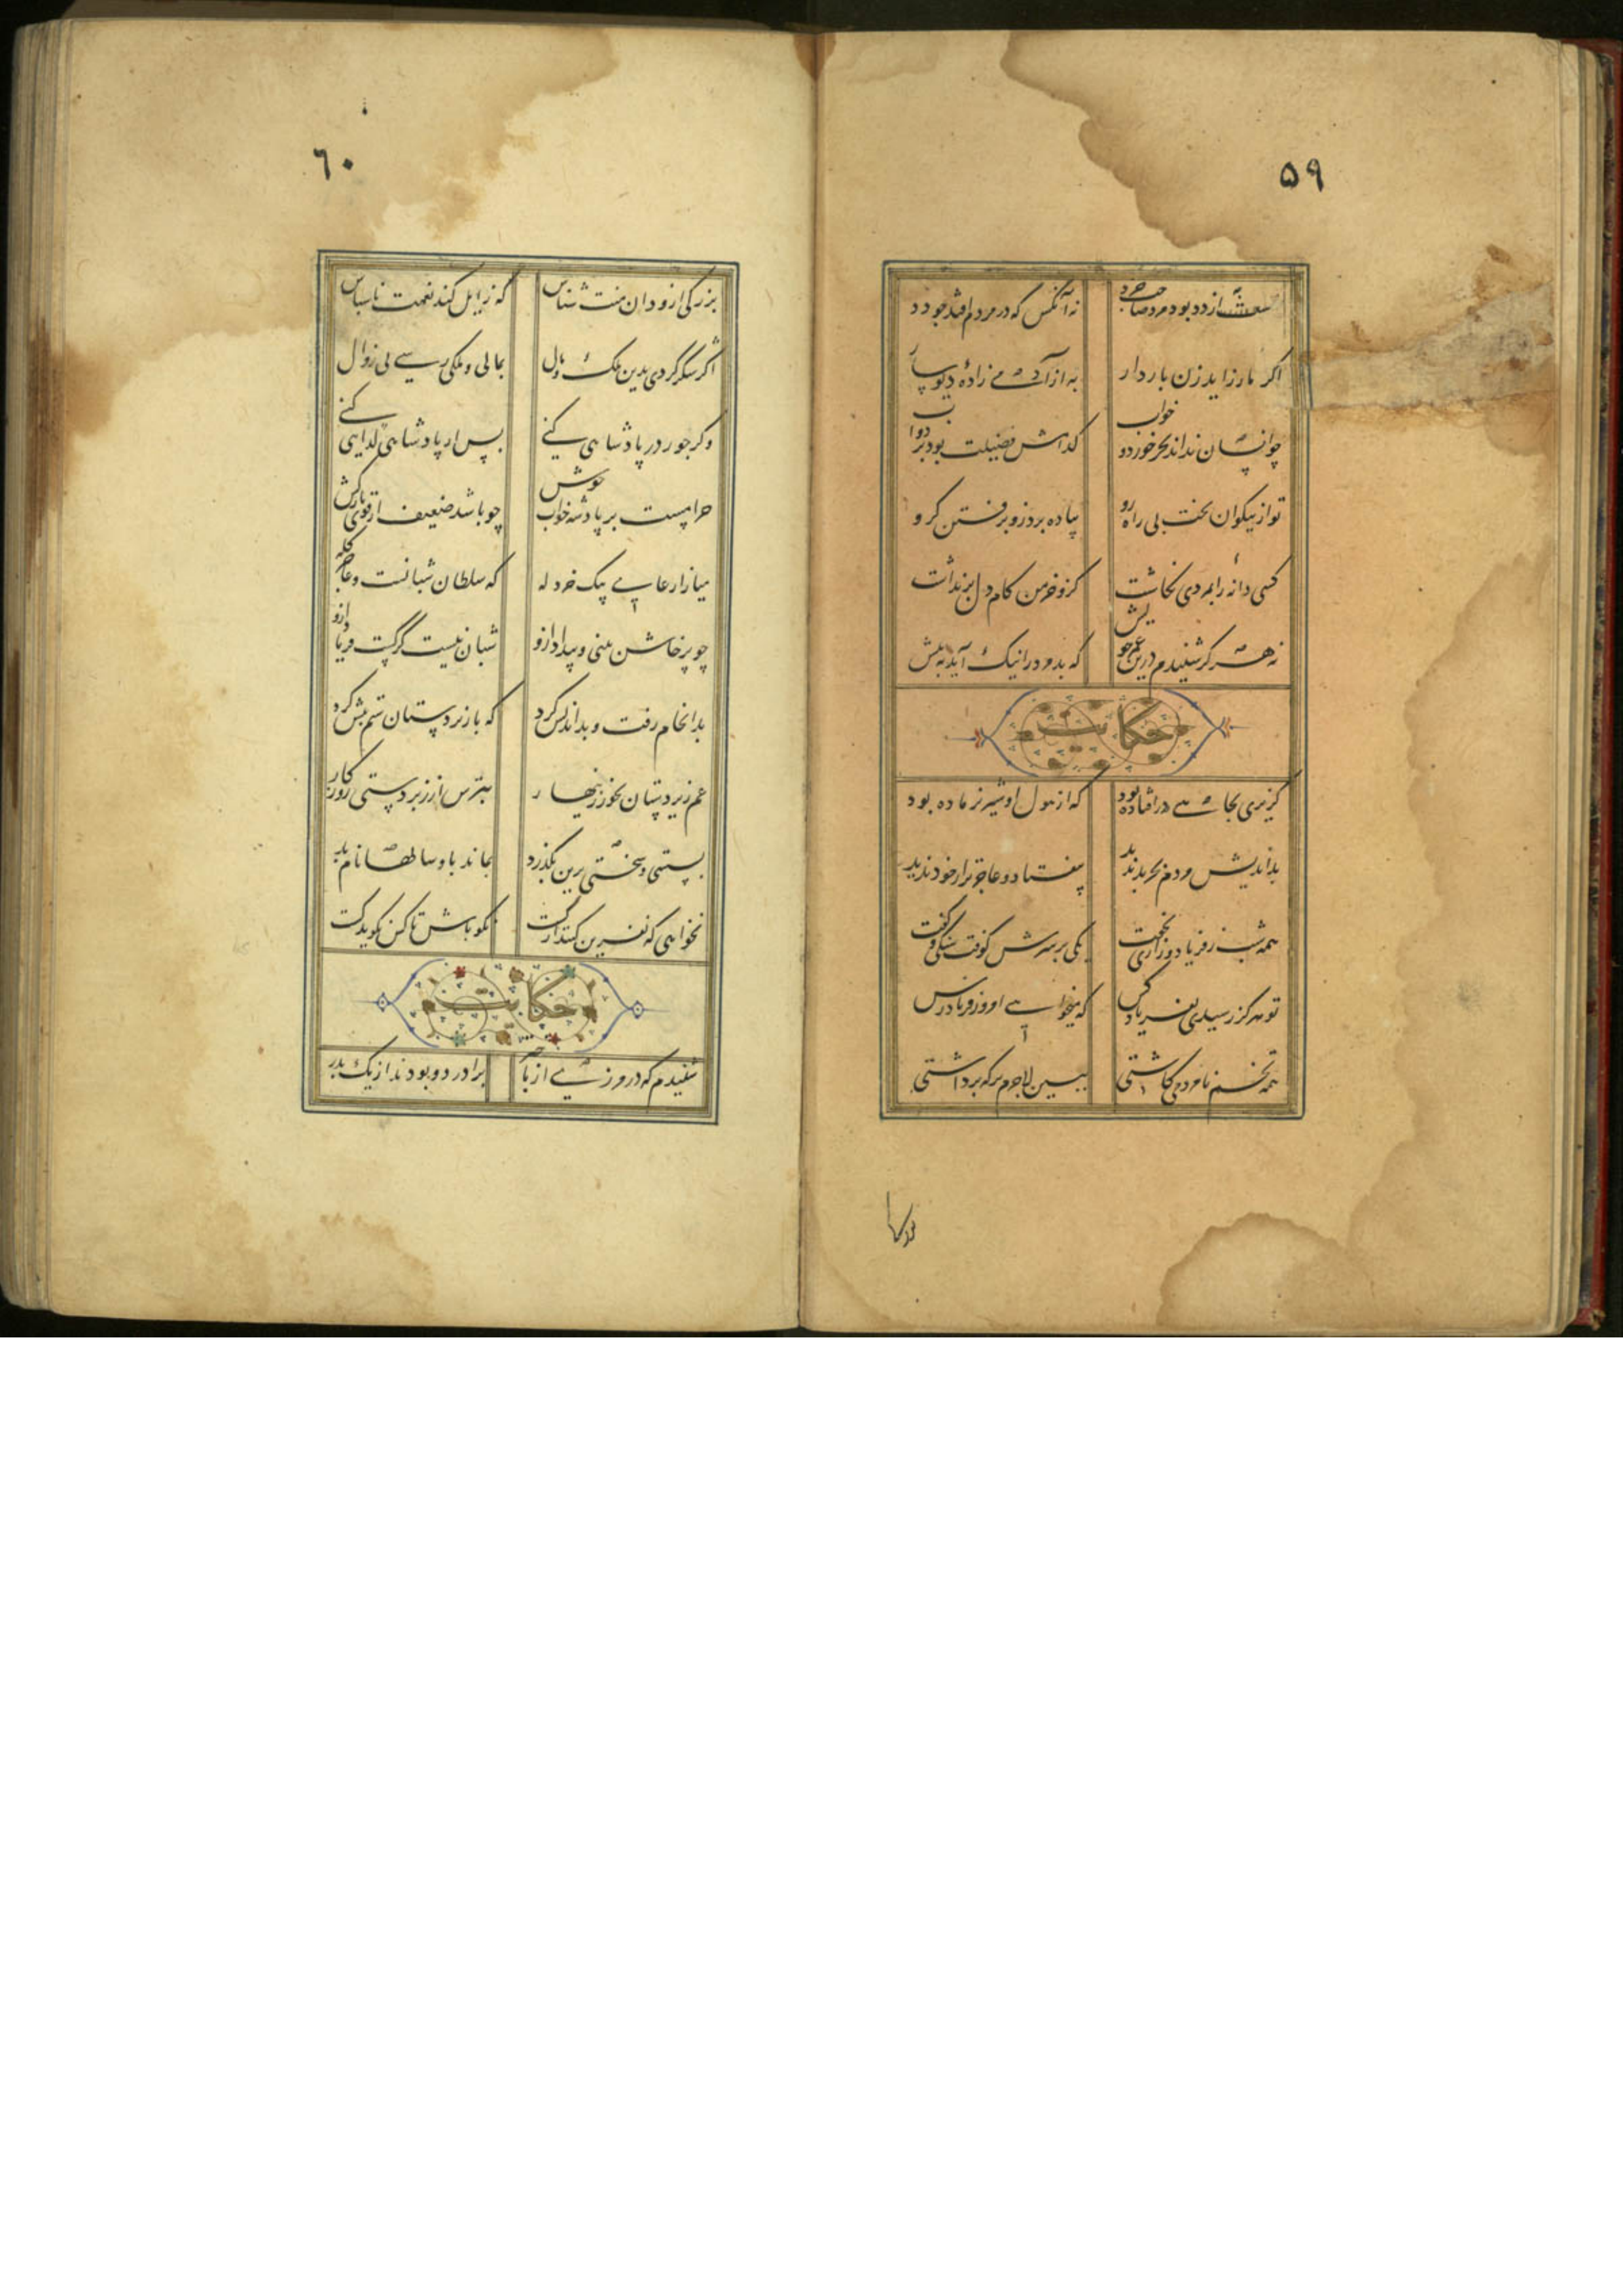 ۵۹
بهست از دد بود مرد صاحب خرد نه آنکس که در مردم افتد چو دد
اگر مار زاید زن باردار به از آدمی زادهٔ دیوسار
چو انسان نداند بجز خورد و خواب کدامش فضیلت بود بر دواب
تو از نیکوان بخت بی راه رو پیاده برد زو برفتن گرو
کسی دانه رادمردی نکاشت کزو خرمن کام دل برنداشت
نه هرگز شنیدم درین عمر خویش که بد مرد را نیک آید به پیش
حکایت
گزیری بچاهی در افتاده بود که از هول او شیر نر ماده بود
بداندیش مردم بجز بد ندید بیفتاد و عاجزتر از خود ندید
همه شب ز فریاد و زاری نخفت یکی بر سرش کوفت سنگی و گفت
تو هرگز رسیدی بفریاد کس که میخواهی امروز فریادرس
همه تخم نامردمی کاشتی ببین لاجرم بر که برداشتی
۶۰
بزرگی ازو دان منت شناس که زایل کند نعمت ناسپاس
اگر شکر کردی بدین ملک و مال بمالی و ملکی رسی بی زوال
وگر جور در پادشاهی کنی پس از پادشاهی گدایی کنی
حرامست بر پادشه خواب خوش چو باشد ضعیف از قوی بارکش
میازار عامی بیک خردله که سلطان شبانست و عامی گله
چو پرخاش بینی و بیداد ازو شبان نیست گرگست فریاد ازو
بدانجام رفت و بد اندیش کرد که با زیردستان ستم پیش کرد
غم زیردستان بخور زینهار بترس از زبردستی روزگار
بسستی و سختی برین بگذرد بماند برو سالها نام بد
نخواهی که نفرین کنند از پست نکو باش تا کس نگوید بدت
حکایت
شنیدم که در مرزی از باختر برادر دو بودند از یک پدر